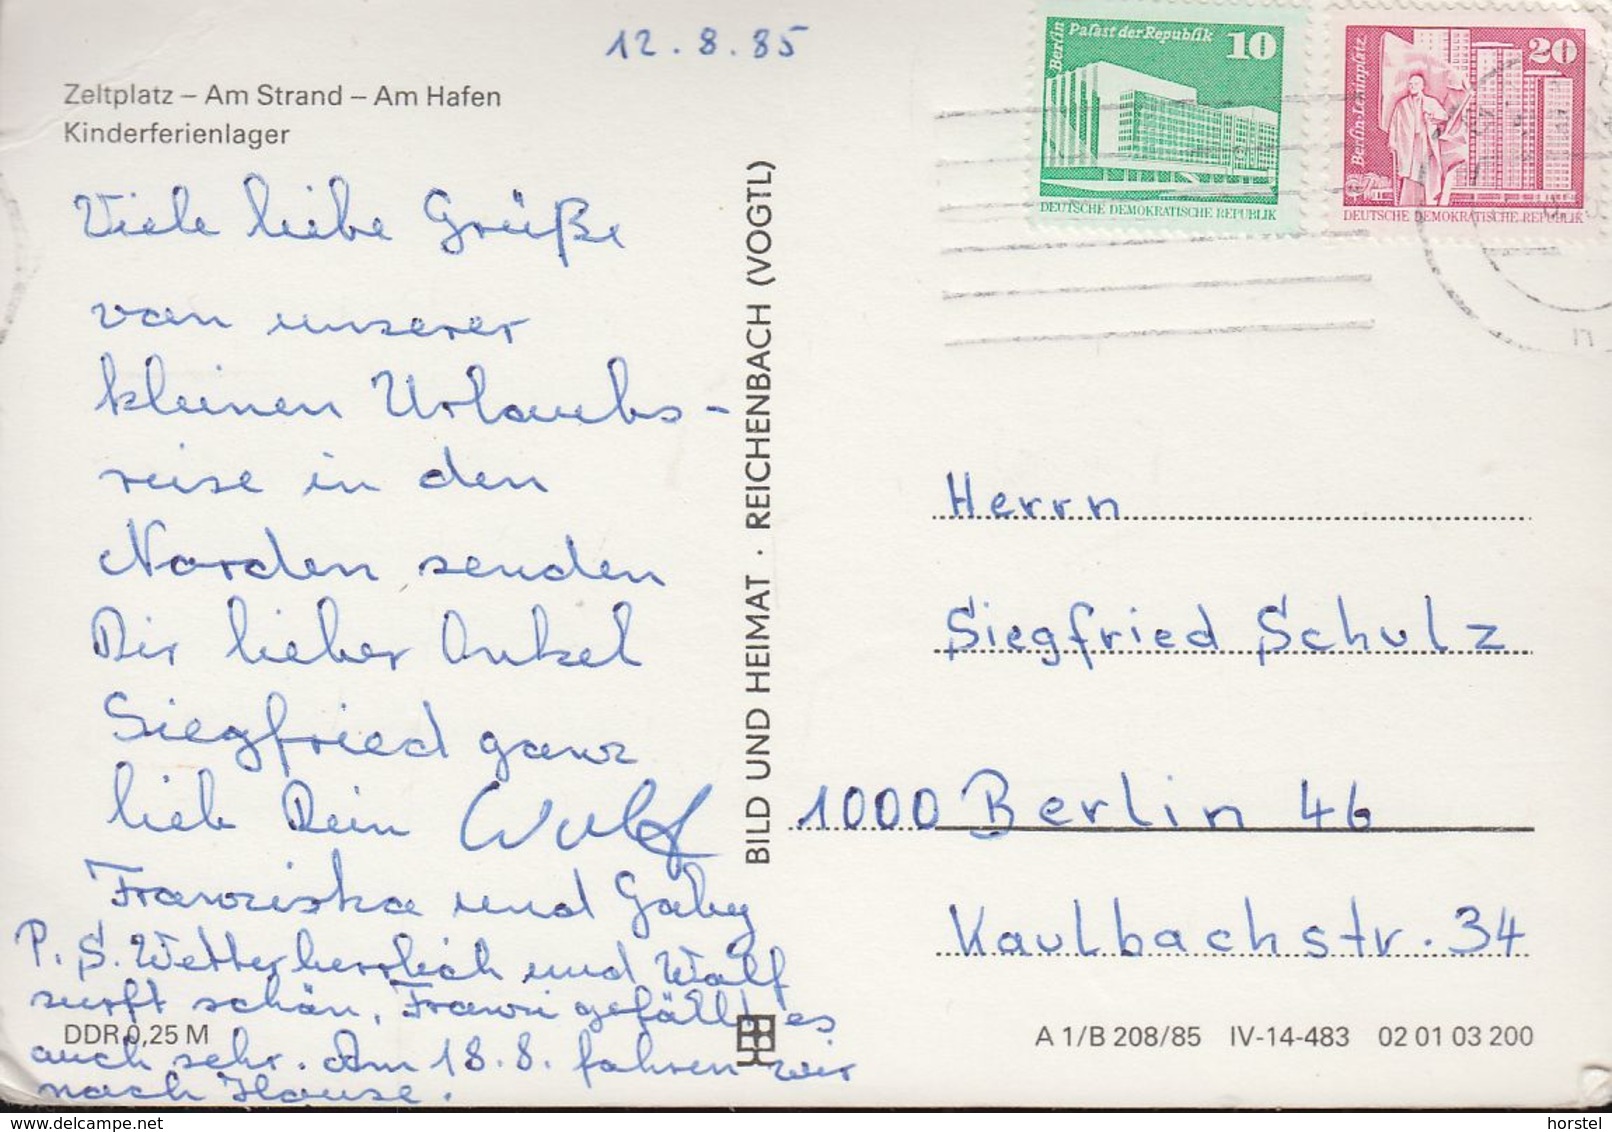 12.8.85
Zeltplatz – Am Strand – Am Hafen
Kinderferienlager
Viele liebe Grüße
von unserer
kleinen Urlaubs-
reise in den
Norden senden
Dir lieber Onkel
Siegfried ganz
lieb Dein Wulf
Franziska und Gaby
P.S. Wetter herrlich und Wolf
surft schön, Franzi gefällt es
auch sehr. Am 18.8. fahren wir
nach Hause.
DDR 0,25 M
BILD UND HEIMAT · REICHENBACH (VOGTL)
Berlin Palast der Republik 10
DEUTSCHE DEMOKRATISCHE REPUBLIK
Berlin-Leninplatz 20
DEUTSCHE DEMOKRATISCHE REPUBLIK
Herrn
Siegfried Schulz
1000 Berlin 46
Kaulbachstr. 34
A 1/B 208/85 IV-14-483 02 01 03 200
horstel
www.delcampe.net